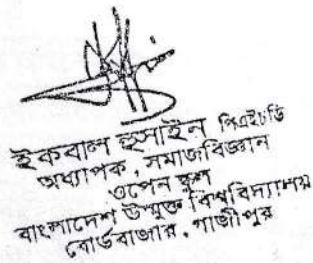 ইকবাল হুসাইন পিএইচডি
অধ্যাপক, সমাজবিজ্ঞান
ওপেন স্কুল
বাংলাদেশ উন্মুক্ত বিশ্ববিদ্যালয়
বোর্ডবাজার, গাজীপুর